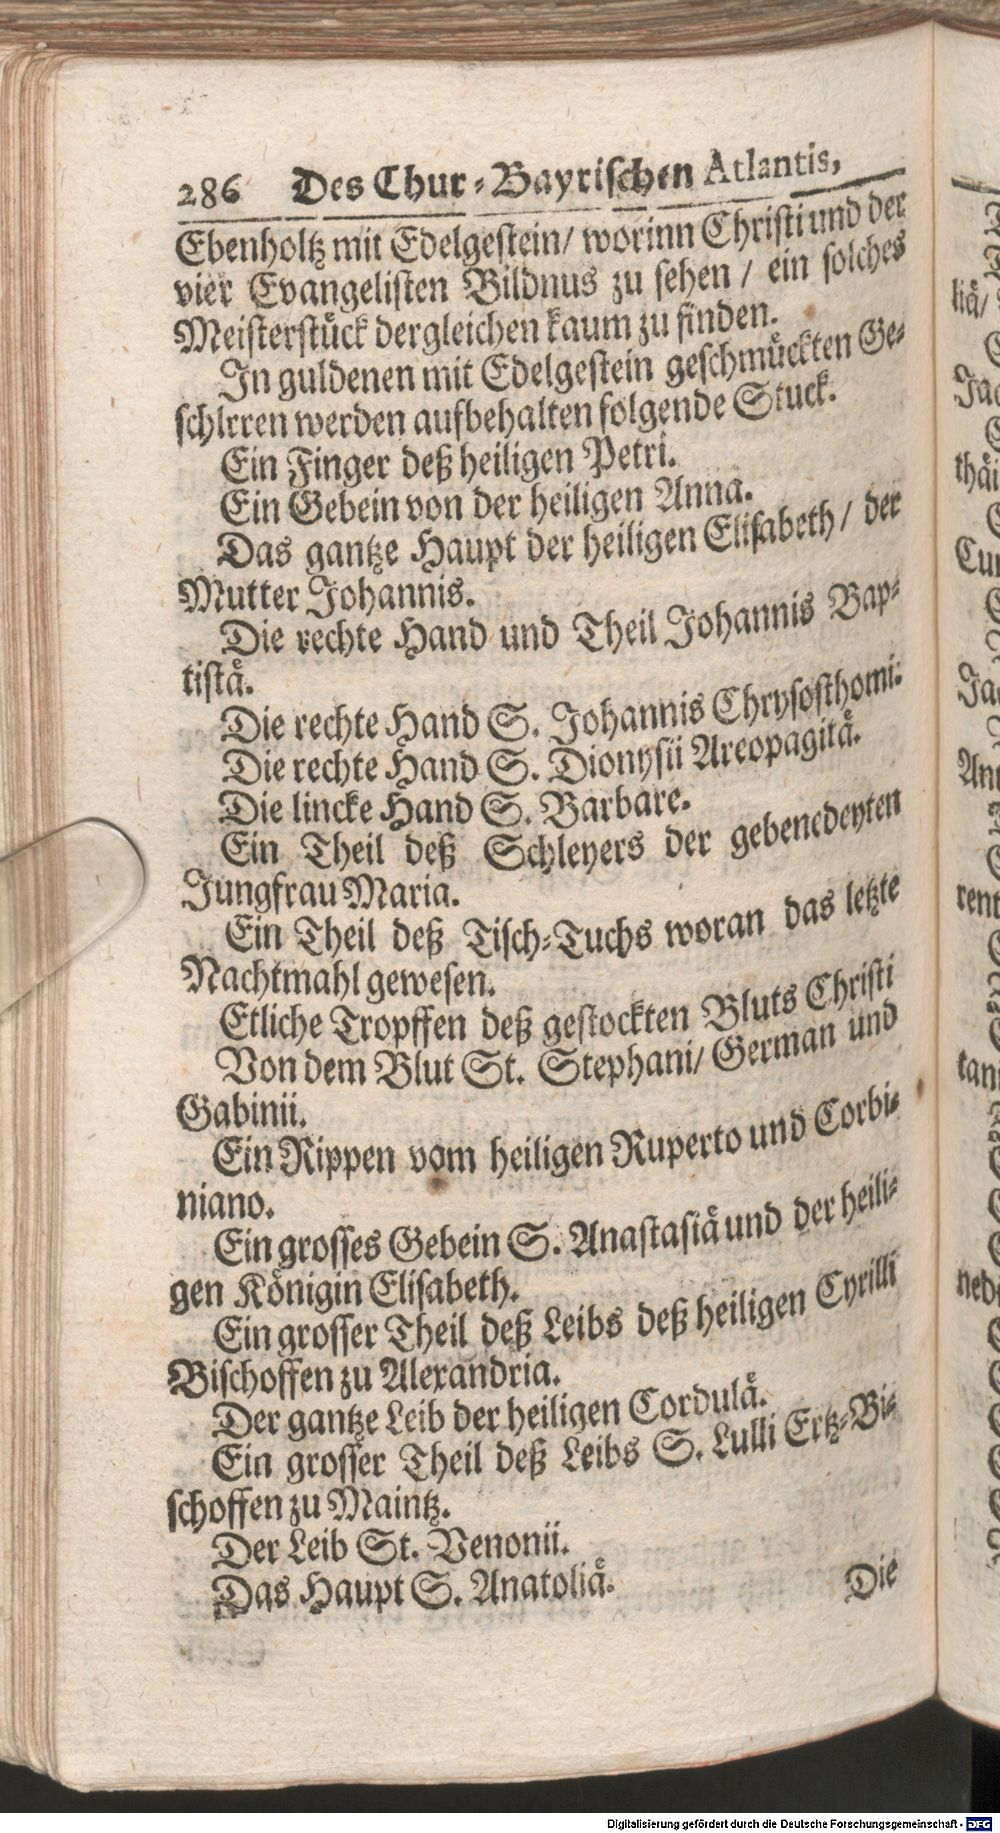 286 Des Chur-Bayrischen Atlantis,
Ebenholtz mit Edelgestein/ worinn Christi und der
vier Evangelisten Bildnus zu sehen / ein solches
Meisterstück dergleichen kaum zu finden.
In guldenen mit Edelgestein geschmückten Ge-
schlrren werden aufbehalten folgende Stuck.
Ein Finger deß heiligen Petri.
Ein Gebein von der heiligen Anna.
Das gantze Haupt der heiligen Elisabeth / der
Mutter Johannis.
Die rechte Hand und Theil Johannis Bap-
tistaͤ.
Die rechte Hand S. Johannis Chrysosthomi.
Die rechte Hand S. Dionysii Areopagitaͤ.
Die lincke Hand S. Barbare.
Ein Theil deß Schleyers der gebenedeyten
Jungfrau Maria.
Ein Theil deß Tisch-Tuchs woran das letzte
Nachtmahl gewesen.
Etliche Tropffen deß gestockten Bluts Christi
Von dem Blut St. Stephani/ German und
Gabinii.
Ein Rippen vom heiligen Ruperto und Corbi-
niano.
Ein grosses Gebein S. Anastasiaͤ und der heili-
gen Koͤnigin Elisabeth.
Ein grosser Theil deß Leibs deß heiligen Cyrilli
Bischoffen zu Alexandria.
Der gantze Leib der heiligen Cordulaͤ.
Ein grosser Theil deß Leibs S. Lulli Ertz-Bi-
schoffen zu Maintz.
Der Leib St. Venonii.
Das Haupt S. Anatoliaͤ.
Die
liaͤ/
Jac
thaͤi
Cun
Ja
An
rent
tan
nebe
Digitalisierung gefördert durch die Deutsche Forschungsgemeinschaft - DFG